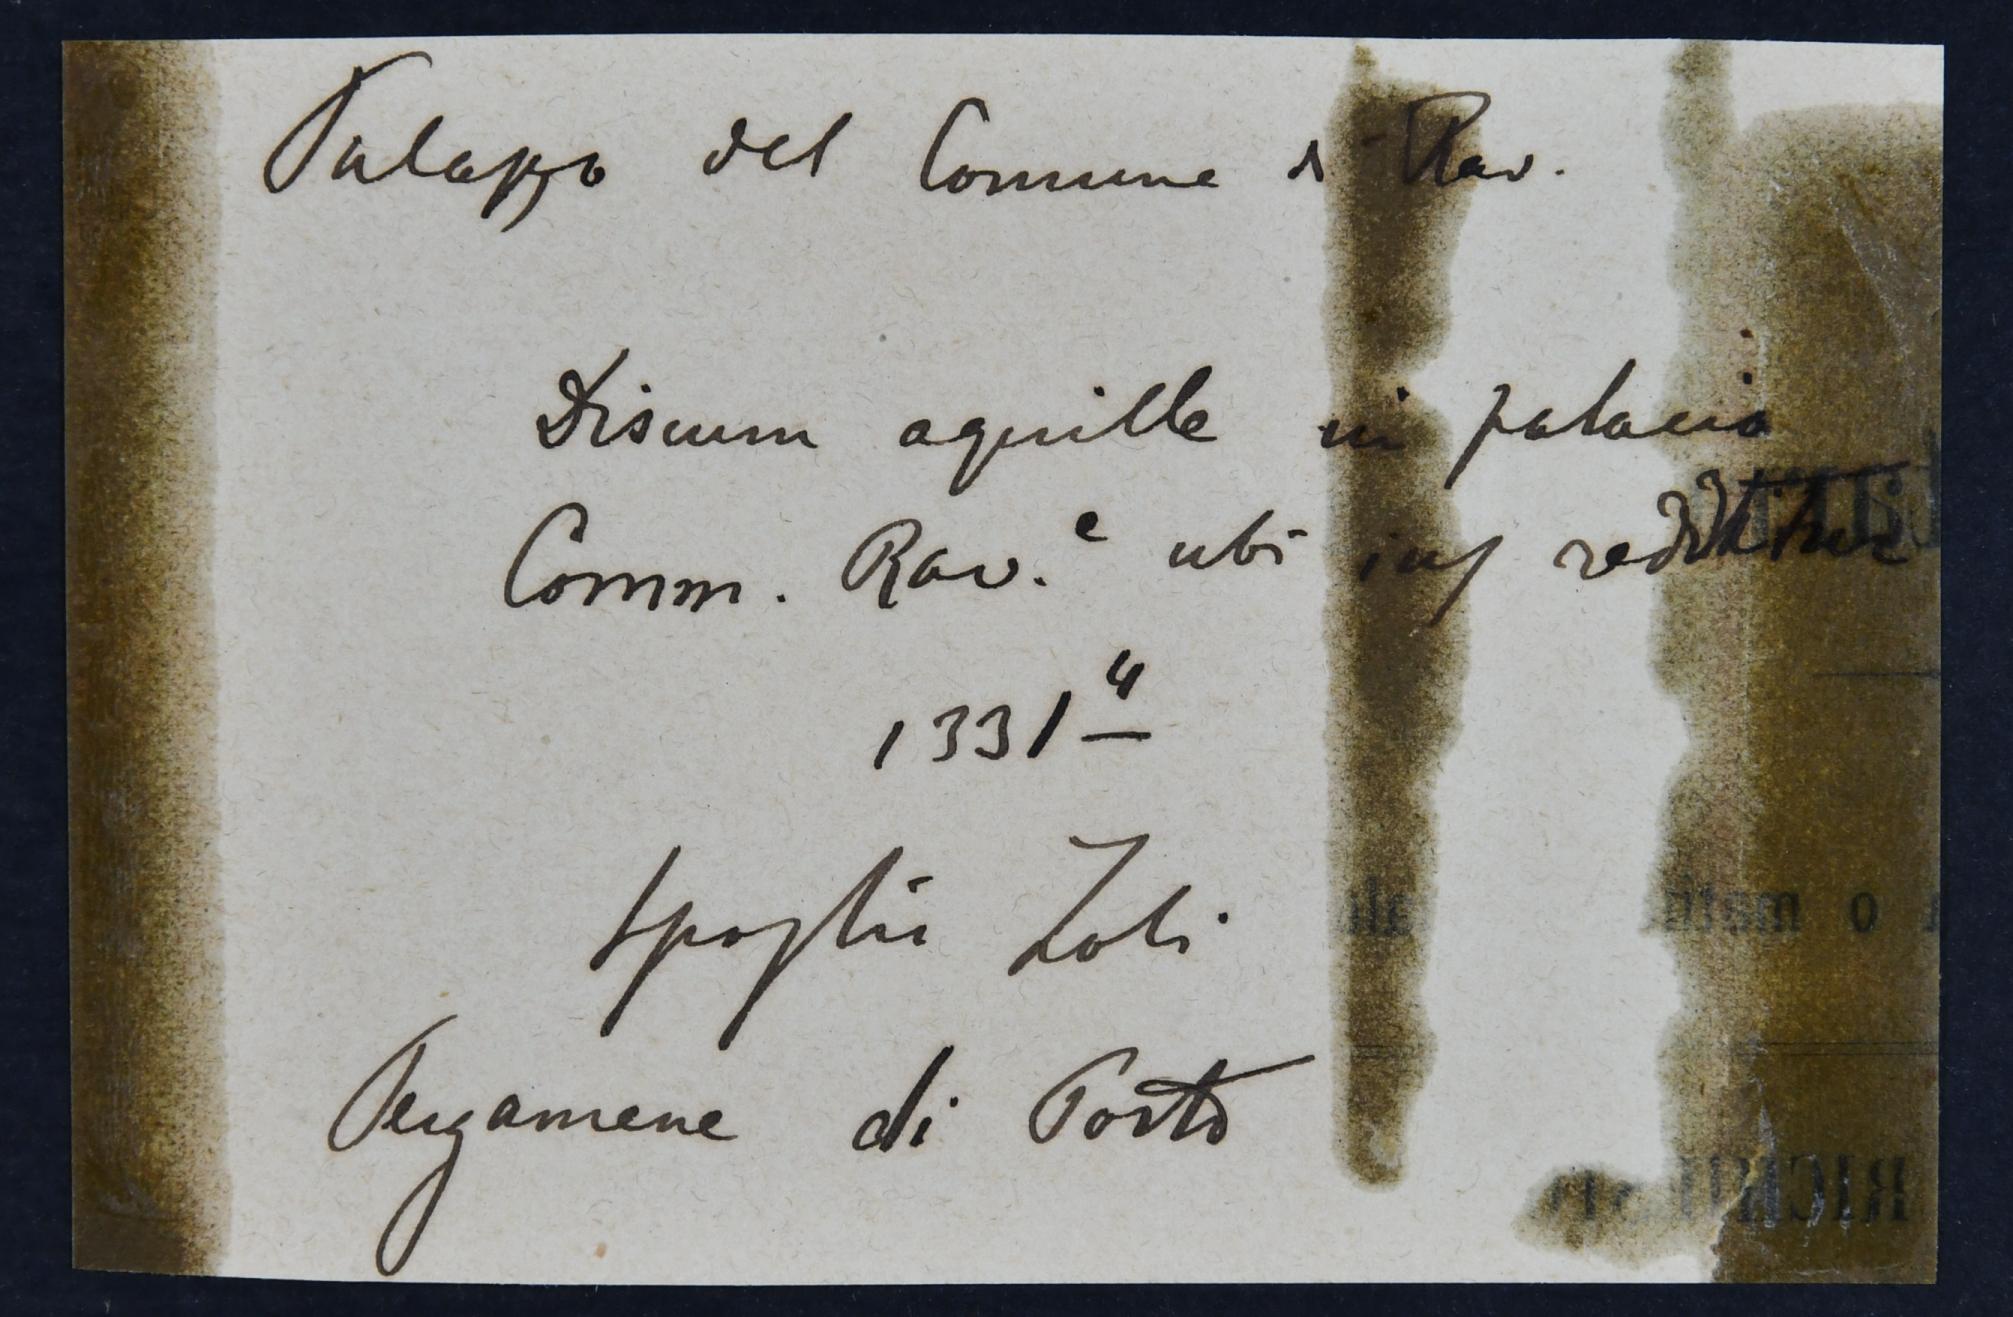 Palazzo del Comune di Rav.
Discum aquille in palacio
Comm. Rav.e ubi ius redditur
1331 4
Spoglii Zoli
Pergamene di Porto